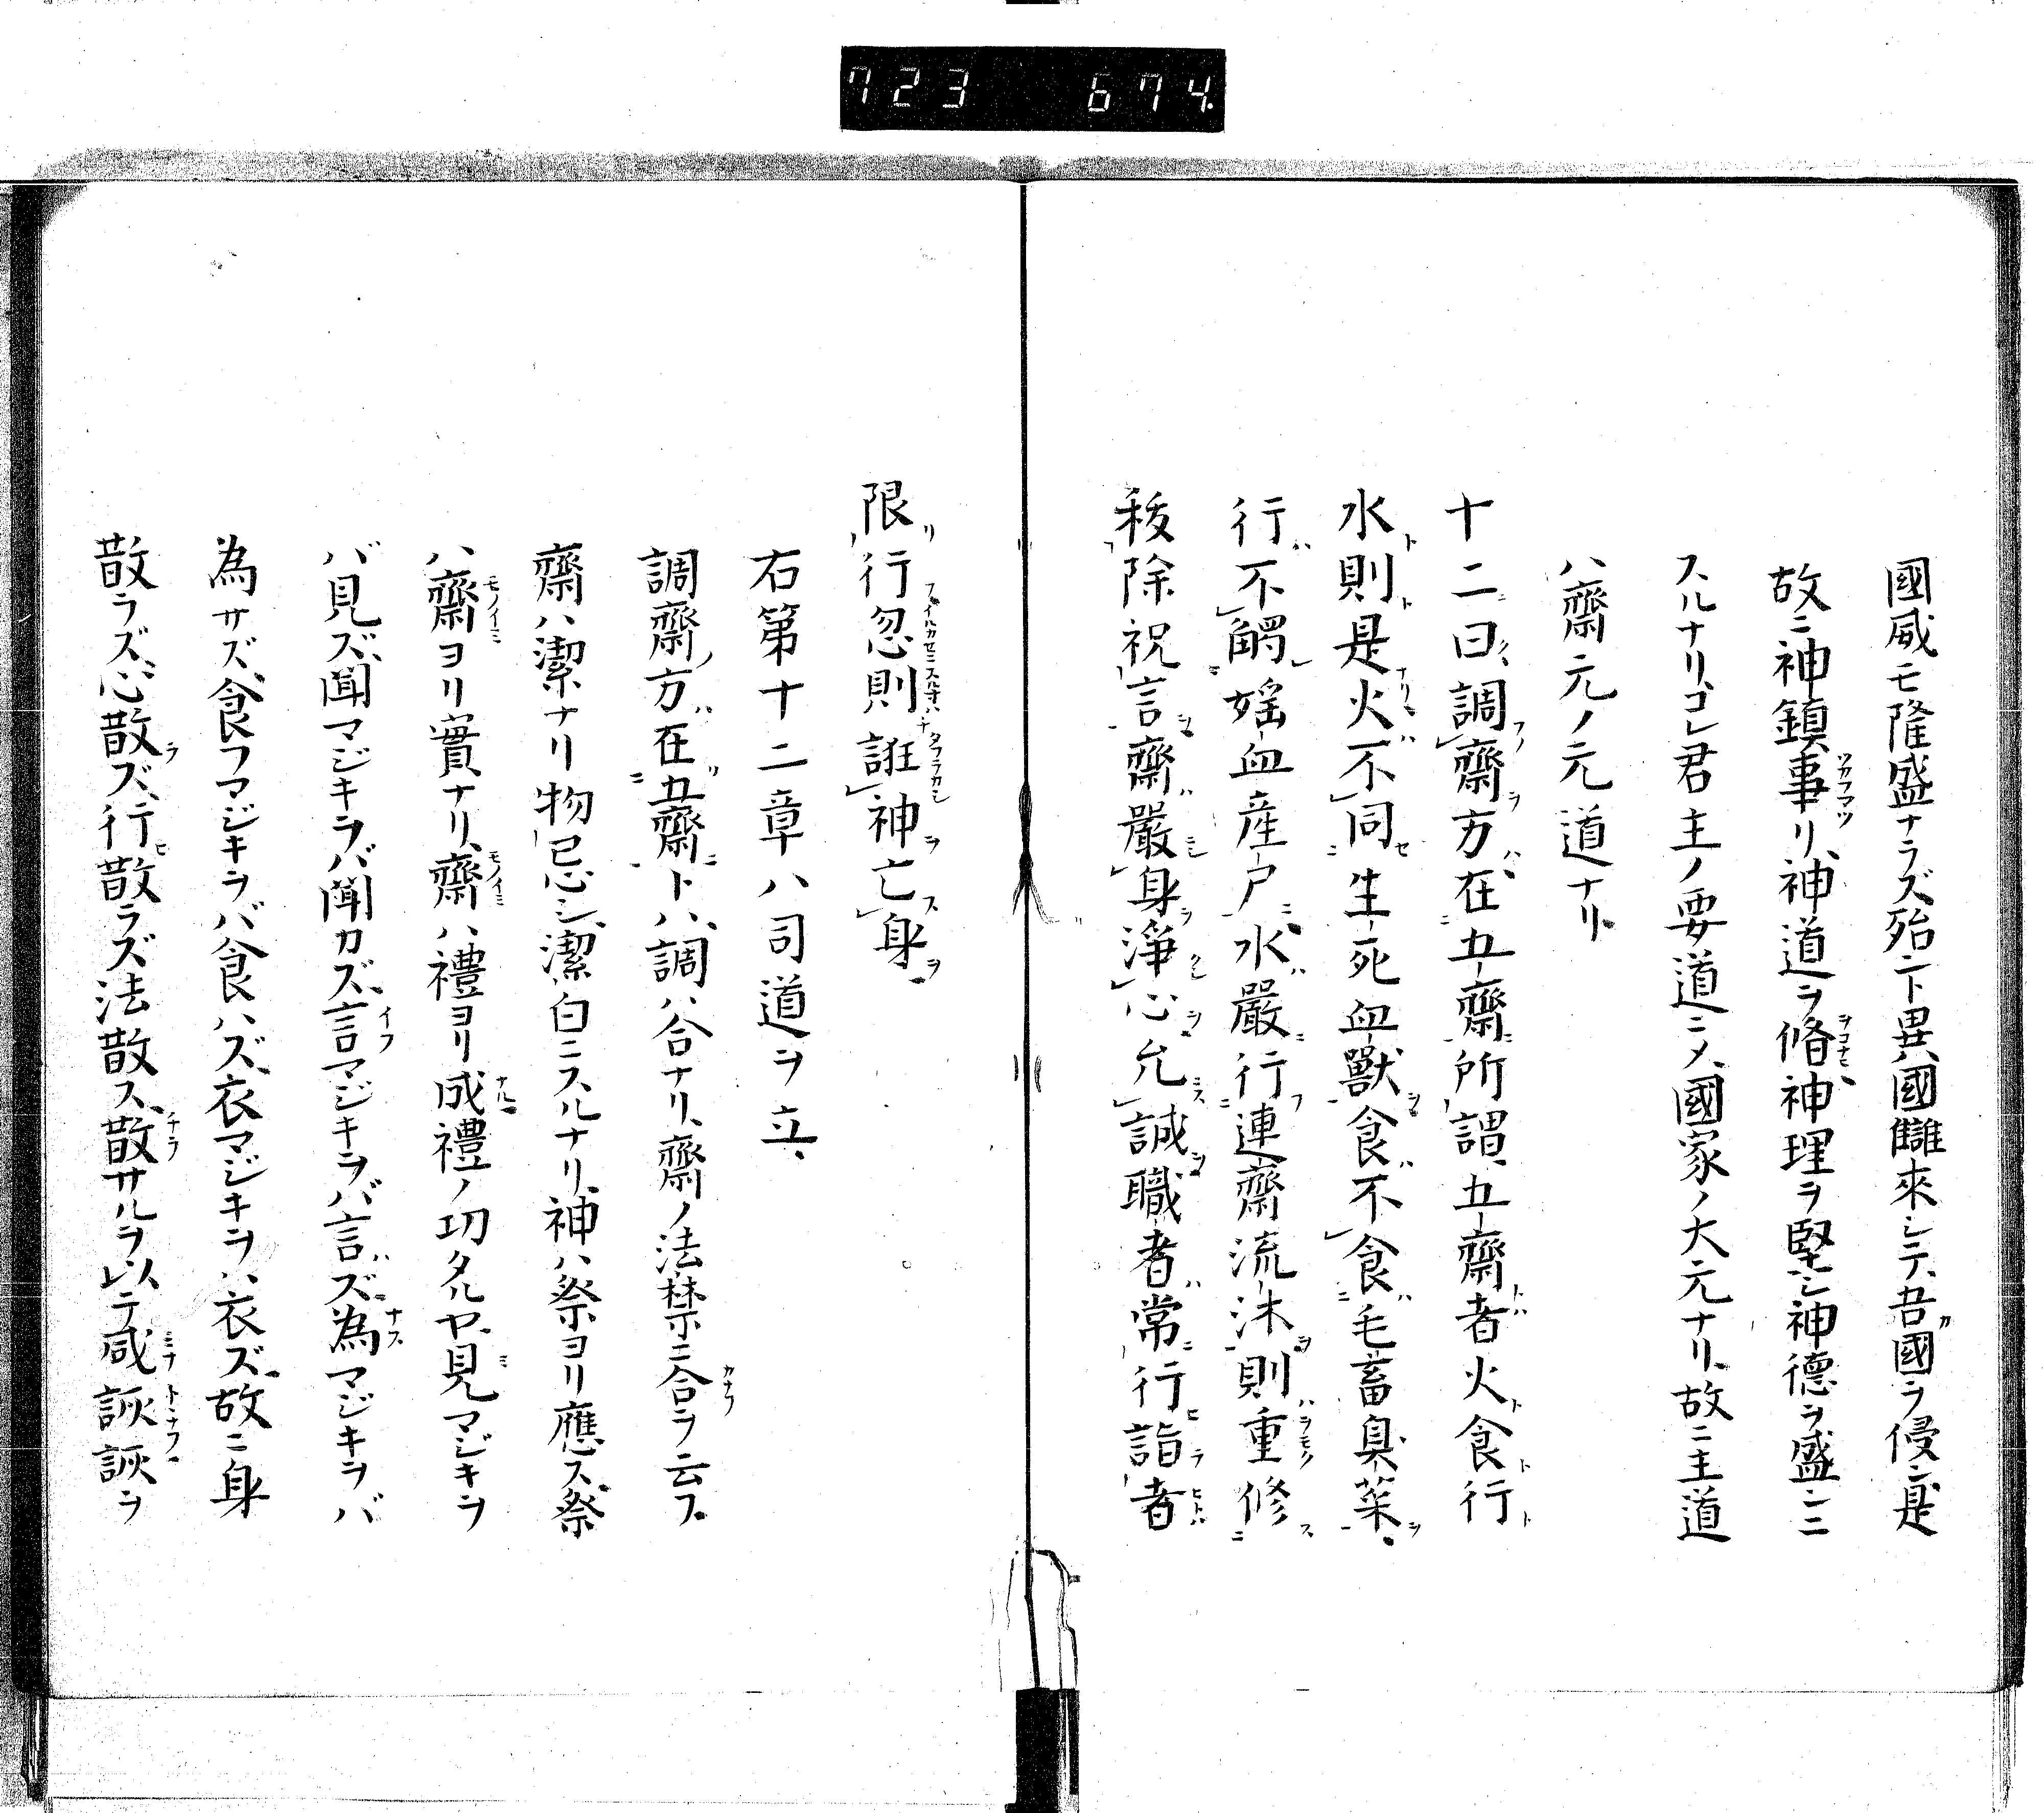 723 674.
國威モ隆盛ナラズ殆ド異國讎來シテ吾國ヲ侵ン是
故ニ神鎮事リ神道ヲ脩神理ヲ堅シ神德ヲ盛ンニ
スルナリコレ君主ノ要道ニメ國家ノ大元ナリ故ニ主道
ハ齋元ノ元道ナリ
十二曰調齋方在五齋所謂五齋者火食行
水則是火不同生死血獸食不食毛畜臭菜
行不觸婬血産戸水嚴行連齋流沐則重修
祓除祝言齋嚴身淨心允誠職者常行詣者
限行忽則誑神亡身
右第十二章ハ司道ヲ立
調齋方在五齋トハ調ハ合ナリ齋ノ法禁ニ合ヲ云フ
齋ハ潔ナリ物已忌シ潔白ニスルナリ神ハ祭ヨリ應ス祭
ハ齋ヨリ實ナリ齋ハ禮ヨリ成禮ノ切タルヤ見マジキヲ
バ見ズ聞マジキヲバ聞カズ言マジキヲバ言ズ為マジキヲバ
為サズ食フマジキヲバ食ハズ衣マジキヲハ衣ズ故ニ身
散ラズ心散ズ行散ラズ法散ス散サルヲ以テ咸誃誃ヲ